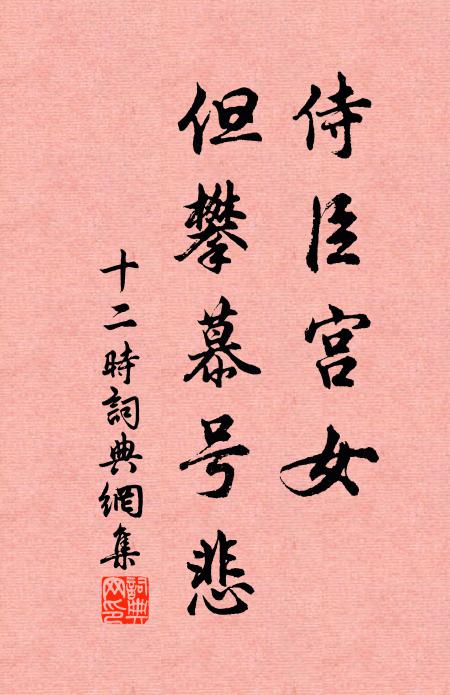 侍臣宫女
但攀慕号悲
十二時詞典網集
詞典网印